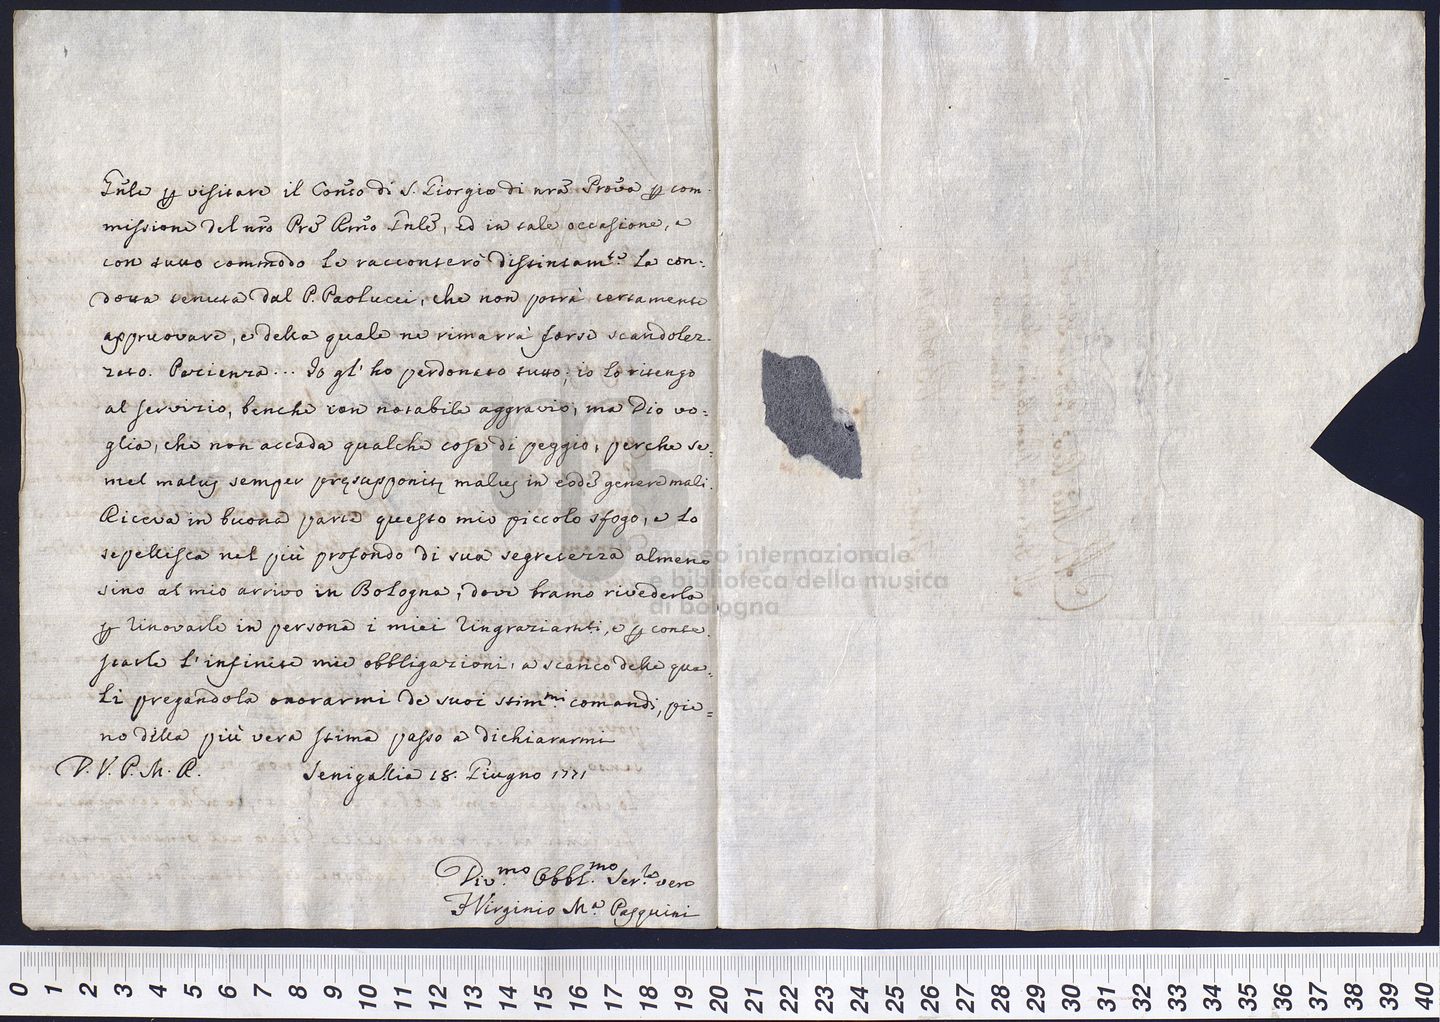 Gn̄le ꝑ visitare il Conv̄to di S. Giorgio di nrā Prov̄a ꝑ com-
missione del nrō Prē Rm̄o Gnlē, ed in tale occasione, e
con tutto commodo le racconterò distintam.te la con=
dotta tenuta dal P. Paolucci, che non potrà certamente
appruovare, e della quale ne rimarrà forse scandolez-
zato. Pacienza... Io gl' ho perdonato tutto; io lo ritengo
al servizio, benche con notabile aggravio; ma Dio vo=
glia, che non accada qualche cosa di peggio, perche se=
mel malus semper pręsupponitur malus in eodē genere mali.
Riceva in buona parte questo mio piccolo sfogo, e lo
sepellisca nel più profondo di sua segretezza almeno
sino al mio arrivo in Bologna, dove bramo rivederla
ꝑ rinovarle in persona i miei ringraziamti, e ꝑ conte-
starle l'infinite mie obbligazioni, a scarico delle qua=
li pregandola onorarmi de suoi stim.mi comandi, pie=
no della più vera stima passo a dichiararmi
D. V. P. M. R. Senigallia 18. Giugno 1771
Div.mo Obbl.mo Ser.re vero
F Virginio M.a Pasquini
museo internazionale
e biblioteca della musica
di bologna
0 1 2 3 4 5 6 7 8 9 10 11 12 13 14 15 16 17 18 19 20 21 22 23 24 25 26 27 28 29 30 31 32 33 34 35 36 37 38 39 40